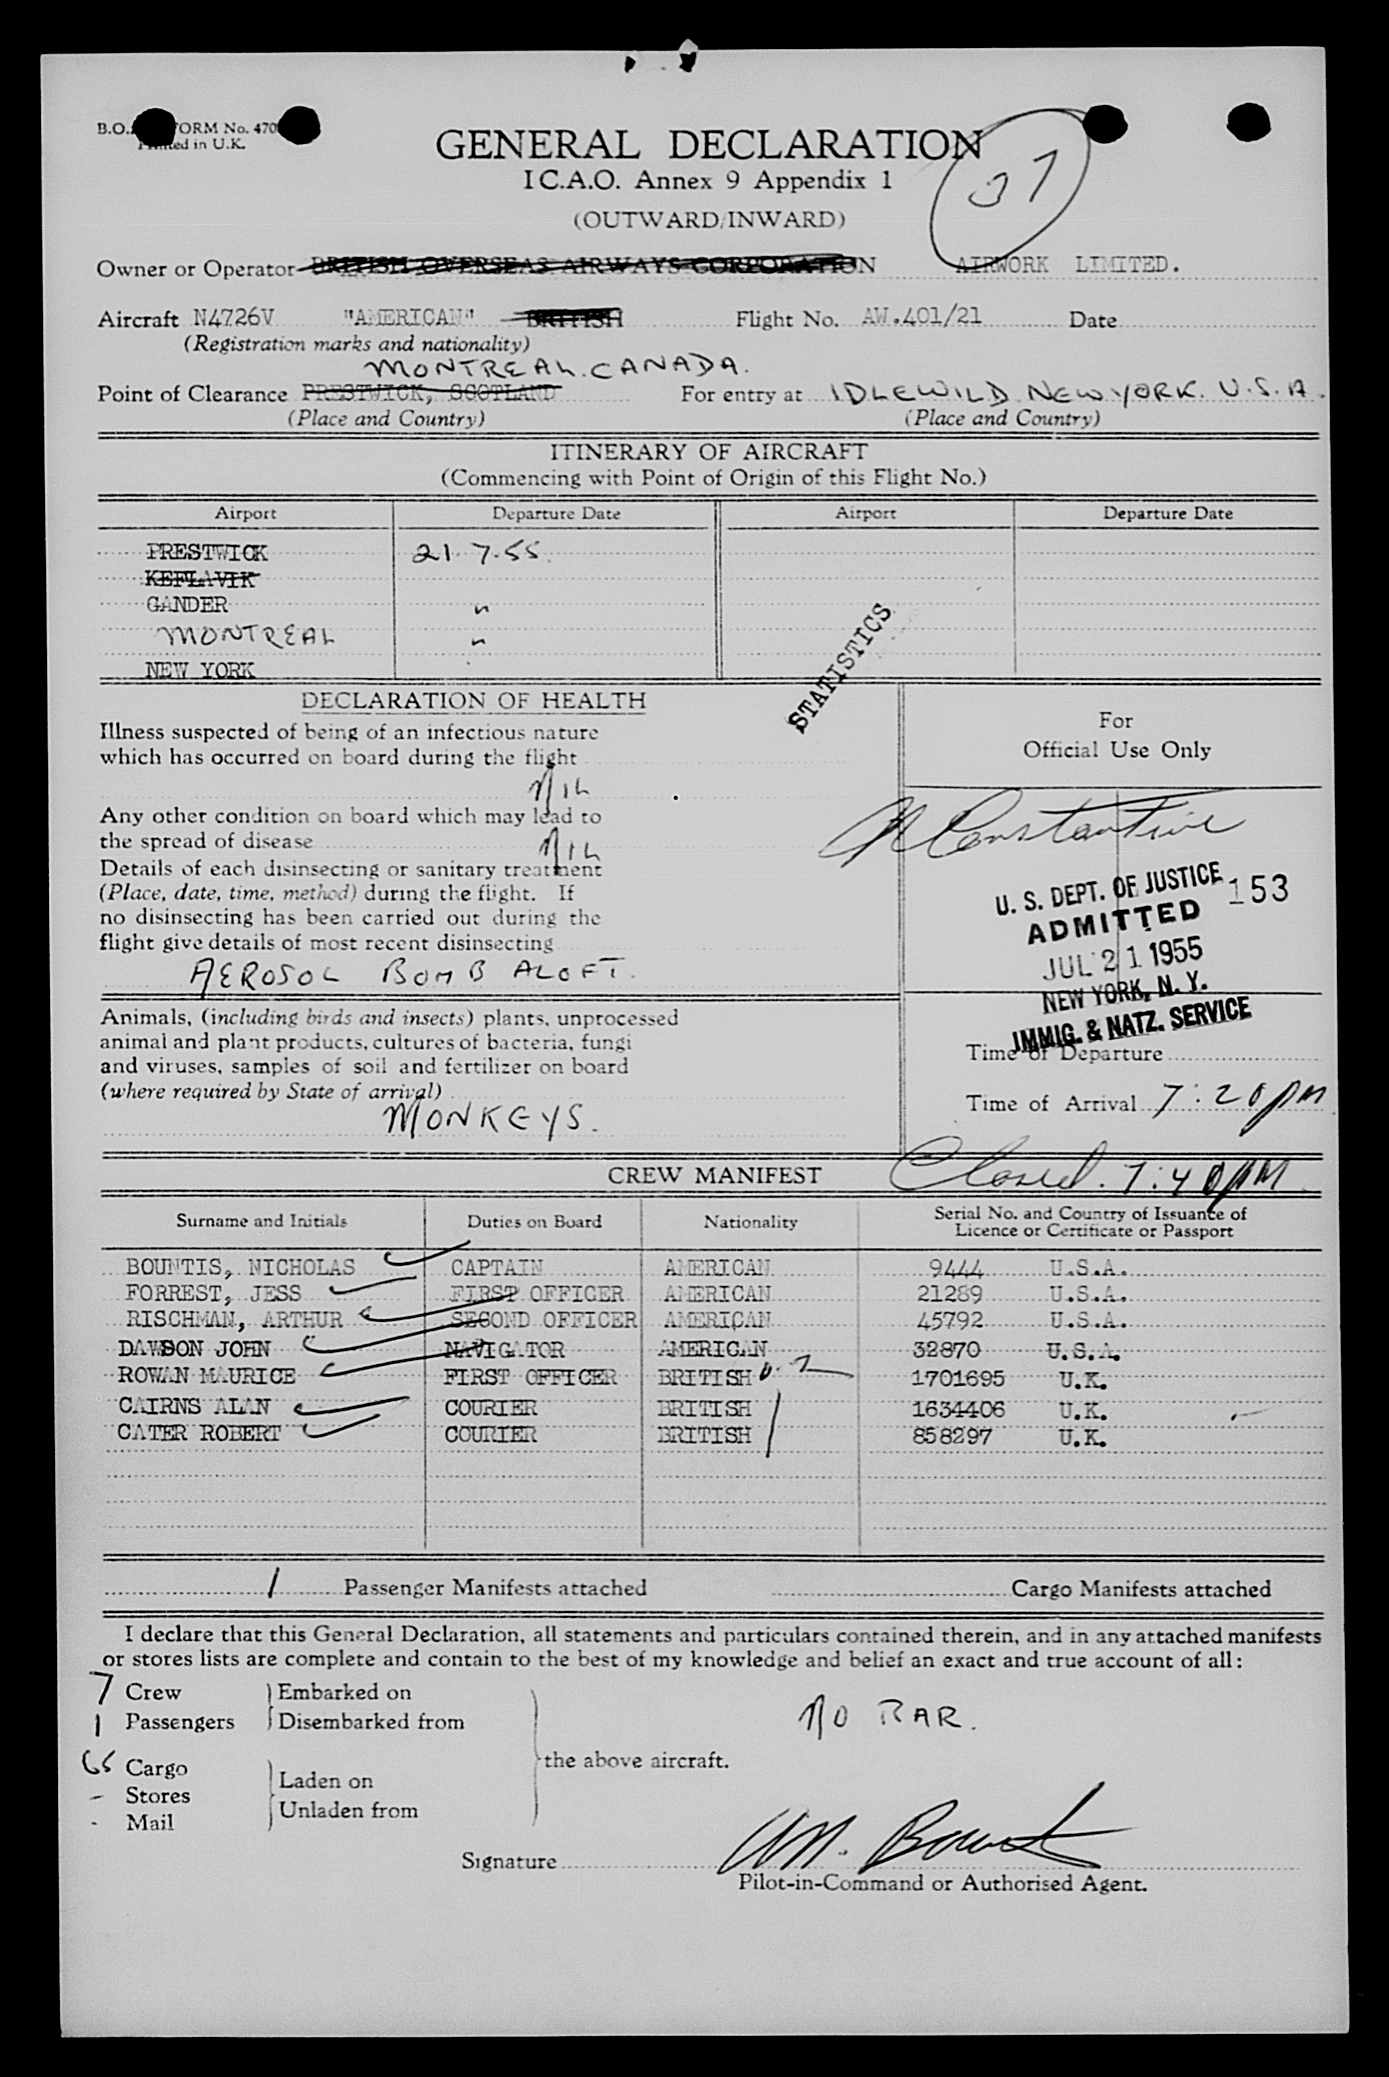 B.O. FORM No. 470
Printed in U.K.
GENERAL DECLARATION
I C.A.O. Annex 9 Appendix 1
(OUTWARD/INWARD)
37
Owner or Operator BRITISH OVERSEAS AIRWAYS CORPORATION AIRWORK LIMITED.
Aircraft N4726V "AMERICAN" BRITISH Flight No. AW.401/21 Date
(Registration marks and nationality)
MONTREAL. CANADA.
Point of Clearance PRESTWICK, SCOTLAND For entry at IDLEWILD NEW YORK. U.S.A.
(Place and Country) (Place and Country)
ITINERARY OF AIRCRAFT
(Commencing with Point of Origin of this Flight No.)
Airport Departure Date Airport Departure Date
PRESTWICK 21.7.55.
KEFLAVIK
GANDER "
MONTREAL "
NEW YORK
STATISTICS
DECLARATION OF HEALTH
Illness suspected of being of an infectious nature
which has occurred on board during the flight
NIL
Any other condition on board which may lead to
the spread of disease NIL
Details of each disinsecting or sanitary treatment
(Place, date, time, method) during the flight. If
no disinsecting has been carried out during the
flight give details of most recent disinsecting
AEROSOL BOMB ALOFT.
Animals, (including birds and insects) plants, unprocessed
animal and plant products, cultures of bacteria, fungi
and viruses, samples of soil and fertilizer on board
(where required by State of arrival)
MONKEYS.
For
Official Use Only
Constantine
U. S. DEPT. OF JUSTICE 153
ADMITTED
JUL 21 1955
NEW YORK, N. Y.
IMMIG. & NATZ. SERVICE
Time of Departure
Time of Arrival 7:20 pm
Closed. 7:40 PM
CREW MANIFEST
Surname and Initials Duties on Board Nationality Serial No. and Country of Issuance of
Licence or Certificate or Passport
BOUNTIS, NICHOLAS CAPTAIN AMERICAN 9444 U.S.A.
FORREST, JESS FIRST OFFICER AMERICAN 21289 U.S.A.
RISCHMAN, ARTHUR SECOND OFFICER AMERICAN 45792 U.S.A.
DAWSON JOHN NAVIGATOR AMERICAN 32870 U.S.A.
ROWAN MAURICE FIRST OFFICER BRITISH 1701695 U.K.
CAIRNS ALAN COURIER BRITISH 1634406 U.K.
CATER ROBERT COURIER BRITISH 858297 U.K.
1 Passenger Manifests attached Cargo Manifests attached
I declare that this General Declaration, all statements and particulars contained therein, and in any attached manifests
or stores lists are complete and contain to the best of my knowledge and belief an exact and true account of all:
7 Crew } Embarked on
1 Passengers } Disembarked from
65 Cargo
- Stores } Laden on
- Mail } Unladen from
the above aircraft.
NO BAR.
Signature
Pilot-in-Command or Authorised Agent.